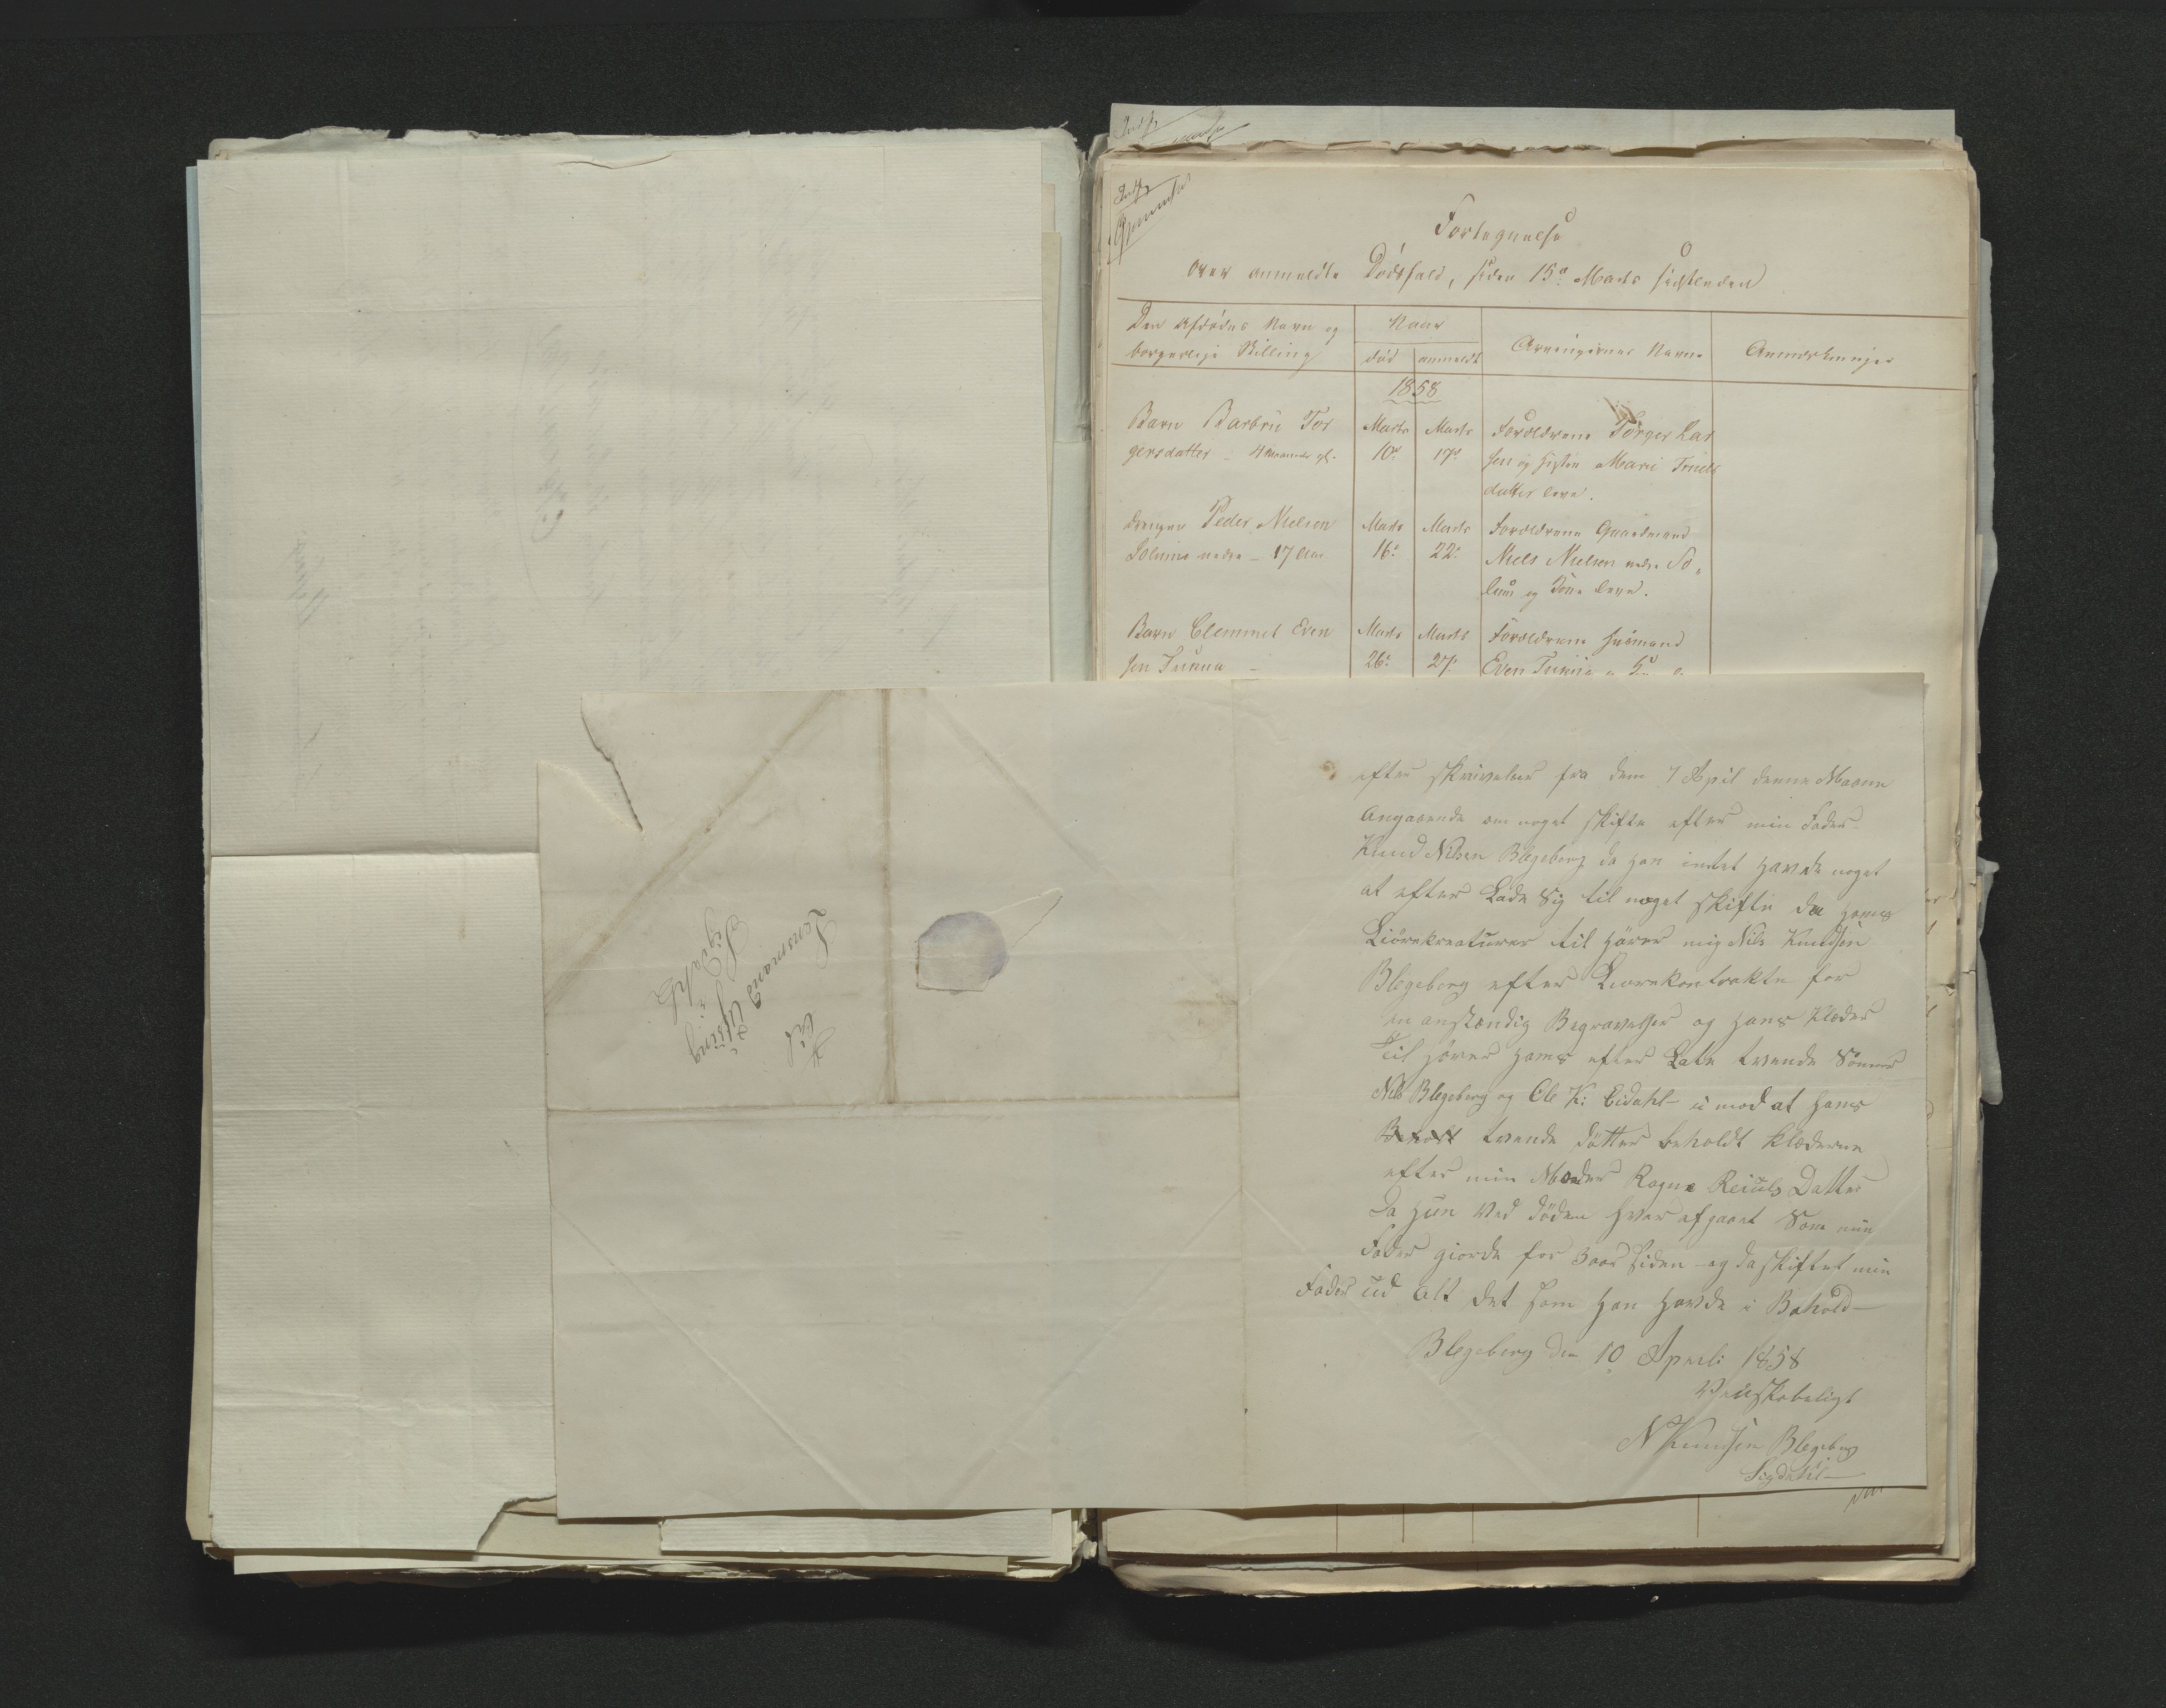 Fortegnelse
over anmeldte Dødsfald, siden 15de Marts sidstleden
Den Afdødes Navn og
borgerlige Stilling
Naar
død
anmeldt
Arvingernes Navne
Anmærkninger
1858
Barn Barbrü Tor
gersdatter - 4 Maaneder gl.
Marts
10de
Marts
17de
Forældrene Torger Lar
sen og Hustru Marie Truels
datter leve.
drengen Peder Nielsen
Solum nedre - 17 Aar
Marts
16de
Marts
22de
Forældrene Gaardmand
Niels Nielsen nedre So„
lum og Kone leve.
Barn Clemmet Even
sen Tunna -
Marts
26de
Marts
27de
Forældrene Husmand
Even
Til
Lensmand
i
Sigdahl
efter skrivelser fra dem 7 Apil denne Maane
Angaaende om noget skifte efter min Fader
Knud Nilsen Blegeberg da han intet havde noget
at efter Lade Sig til noget skifte da hans
Liörekreaturer til hörer mig Nils Knudsen
Blegeberg efter Liørekontrakte for
en anstændig Begravelser og hans Klæder
Til hörer hans efter Late tvende Sönner
Nils Blegeberg og Ole K: Eidahl i mod at hans
tvende dötter beholdt klæderne
efter min Moder Ragne Reiuls Datter
da hun Ved döden hver afgaaet Som min
Fader giorde for 3 aar siden - og da skiftet min
Fader ud alt det som han havde i Behold -
Blegeberg den 10 Aprili 1858
Venskabeligt
N Knudsen Blegeberg
Sigdahl